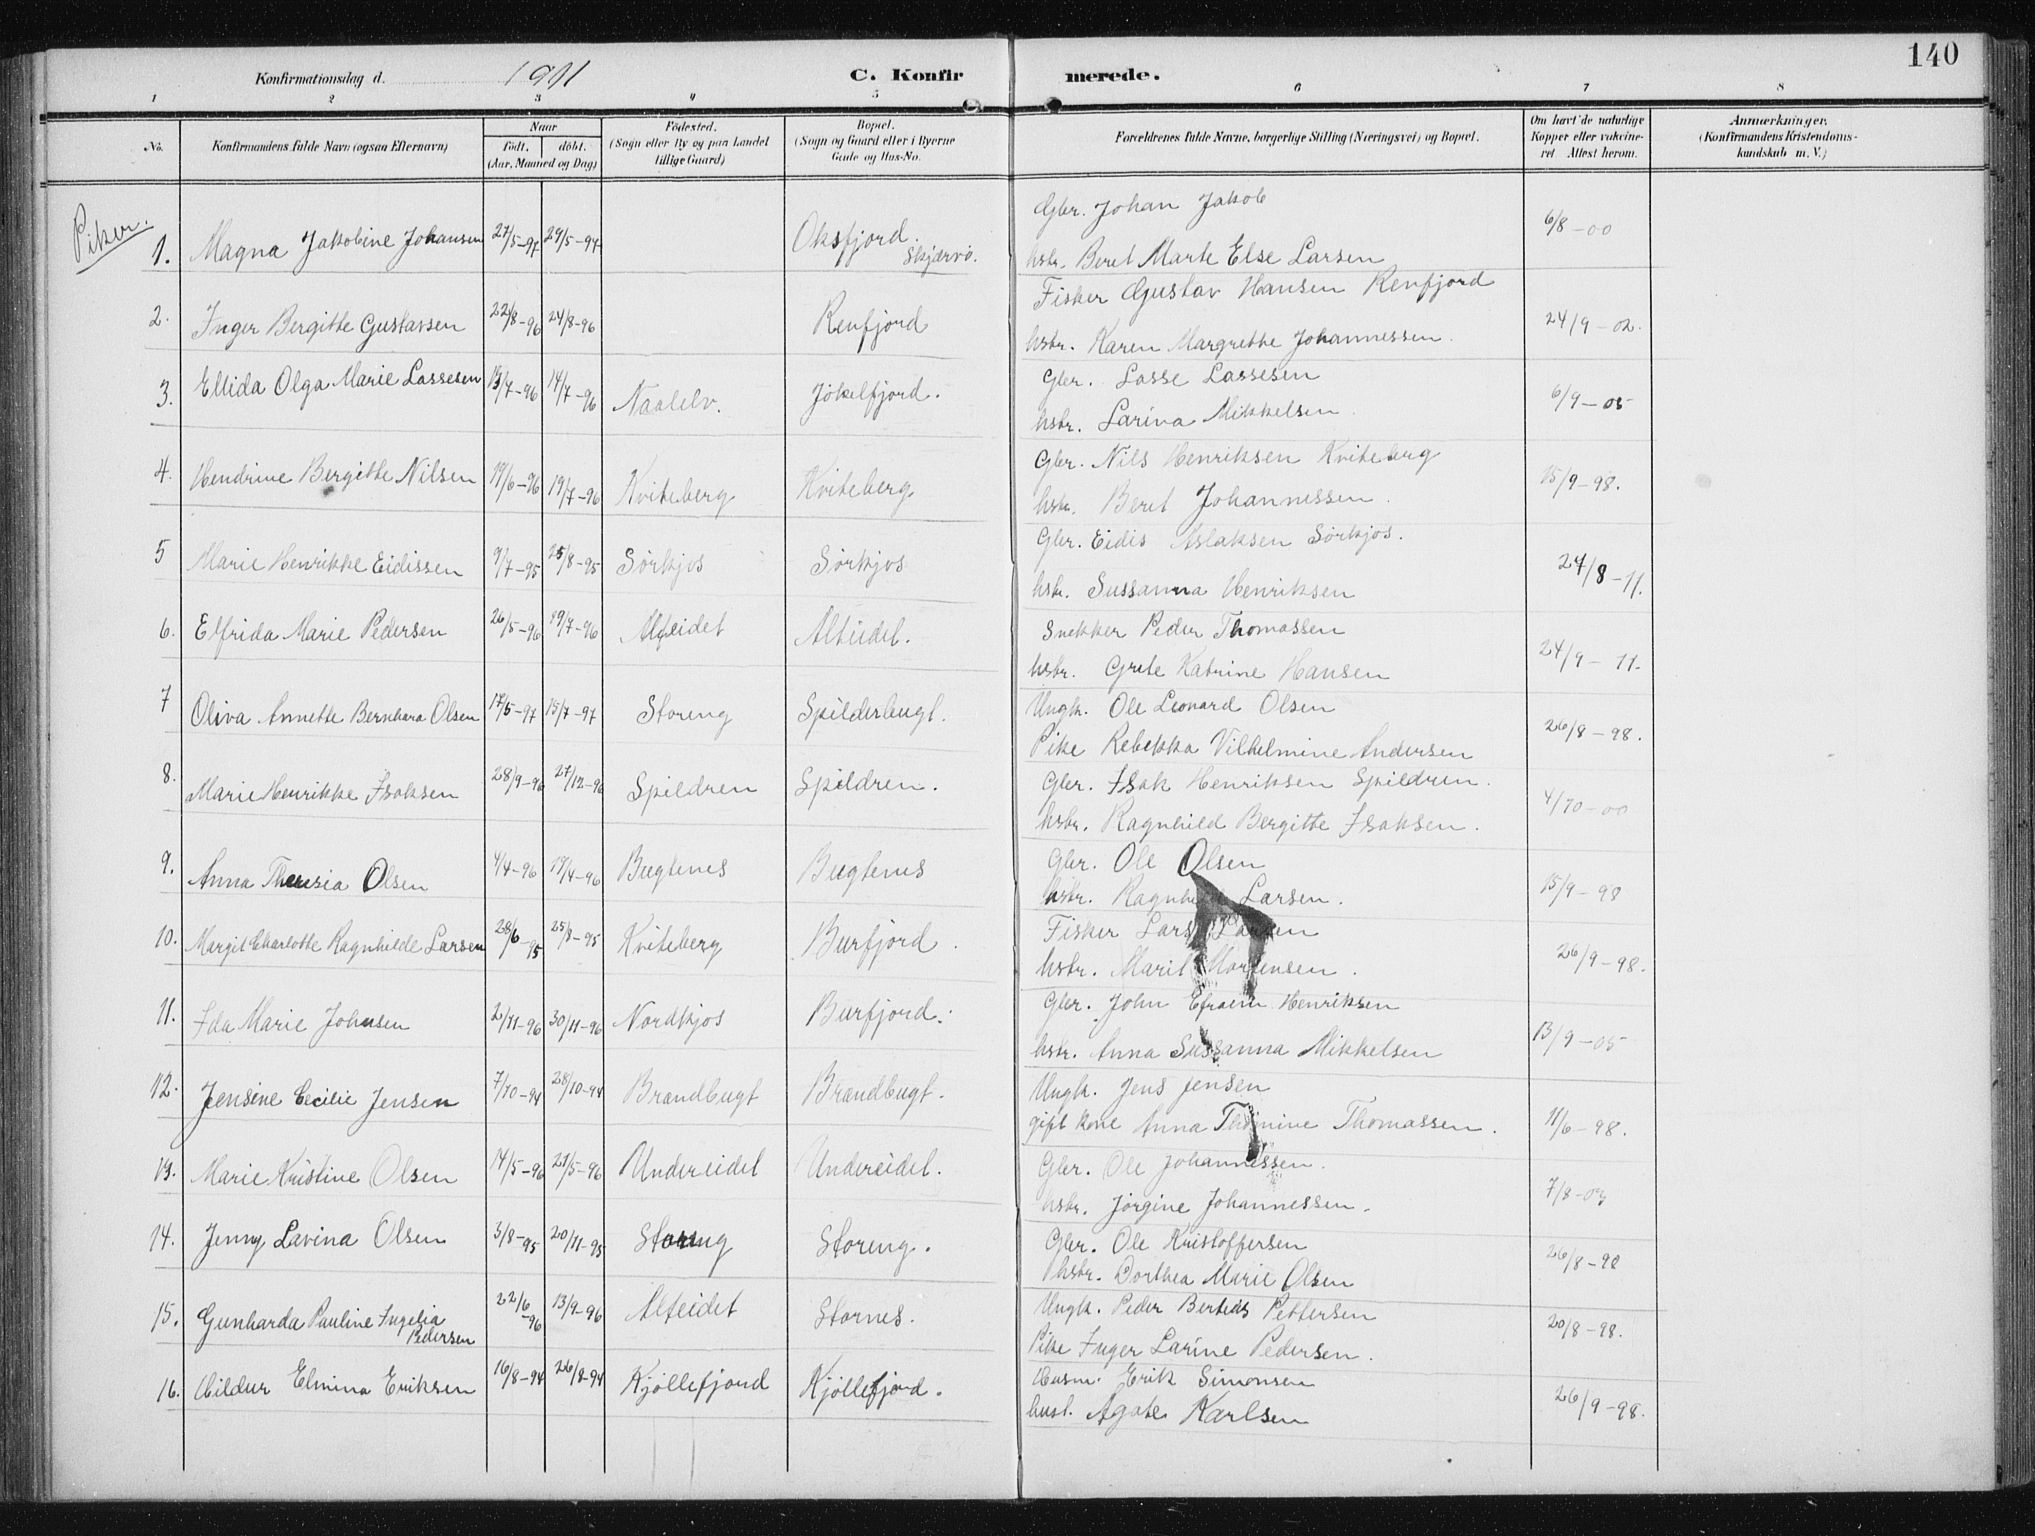 140
Konfirmationsdag d. 1911 C. Konfirmerede.
1 2 3 4 5 6 7 8
No.
Konfirmandens fulde Navn (ogsaa Efternavn)
Naar
födt. döbt.
(Aar, Maaned og Dag)
Födested.
(Sogn eller By og paa Landet
tillige Gaard)
Bopæl.
(Sogn og Gaard eller i Byerne
Gade og Hus-No.
Forældrenes fulde Navne, borgerlige Stilling (Næringsvei) og Bopæl.
Om havt de naturlige
Kopper eller vakcine-
ret Attest herom.
Anmærkninger.
(Konfirmandens Kristendoms-
kundskab m. V.)
Piker.
1. Magna Jakobine Johansen 27/5-97 29/5-97 Oksfjord Skjærvö. Gbr. Johan Jakob 6/8-00
hstr. Beret Marte Else Larsen
2. Inger Bergitte Gustavsen 22/8-96 24/8-96 Renfjord Fisker Gustav Hansen Renfjord 24/9-02.
hstr. Karen Margrethe Johannessen.
3. Ellida Olga Marie Lassesen 13/7-96 14/7-96 Naalelv. Jökelfjord. Gbr. Lasse Lassesen 6/9-05
hstr. Larina Mikkelsen.
4. Hendrine Bergitte Nilsen 19/6-96 19/7-96 Kviteberg Kviteberg Gbr. Nils Henriksen Kviteberg 15/9-98.
hstr. Beret Johannessen.
5 Marie Henrikke Eidissen 9/7-95 25/8-95 Sörkjos Sörkjos Gbr. Eidis Aslaksen Sörkjos. 24/8-11.
hstr. Sussanna Henriksen
6. Elfrida Marie Pedersen 26/5-96 19/7-96 Alteidet Alteidet. Snekker Peder Thomassen 24/9-11.
hstr. Grete Katrine Hansen
7 Oliva Annette Bernhara Olsen 17/5-97 15/7-97 Storeng Spilderbugt. Ungk. Ole Leonard Olsen 26/8-98.
Pike Rebekka Vilhelmine Andersen
8. Marie Henrikke Isaksen 28/9-96 27/12-96 Spildren Spildren. Gbr. Isak Henriksen Spildren. 4/10-00
hstr. Ragnhild Bergitte Isaksen.
9. Anna Theresia Olsen 4/4-96 19/4-96 Bugtenes Bugtenes Gbr. Ole Olsen 15/9-98
hstr. Larsen.
10. Margit Charlotte Ragnhilde Larsen 28/6-95 25/8-95 Kviteberg Burfjord. Fisker Lars Larsen 26/9-98.
hstr. Marit Mortensen.
11. Ida Marie Johnsen 2/11-96 30/11-96 Nordkjos Burfjord. Gbr. John Efraim Henriksen 13/9-05
hstr. Anna Sussanna Mikkelsen
12. Jensine Cecilie Jensen 7/10-94 28/10-94 Brandbugt Brandbugt. Ungk. Jens Jensen 11/6-98.
gift kone Anna Thomine Thomassen.
13. Marie Kristine Olsen 14/5-96 21/5-96 Undereidet Undereidet. Gbr. Ole Johannessen. 7/8-03
hstr. Jörgine Johannessen.
14. Jenny Lavina Olsen 3/8-95 20/11-95 Storeng Storeng. Gbr. Ole Kristoffersen 26/8-98
hstr. Dorthea Marie Olsen
15. Gunharda Pauline Ingelia Pedersen 22/6-96 13/9-96 Alteidet Stornes. Ungk. Peder Berteus Pettersen 20/8-98.
Pike Inger Larine Pedersen.
16. Hildur Elmina Eriksen 16/8-94 26/8-94 Kjöllefjord Kjöllefjord. Husm. Erik Simonsen 26/9-98.
hust. Agate Karlsen